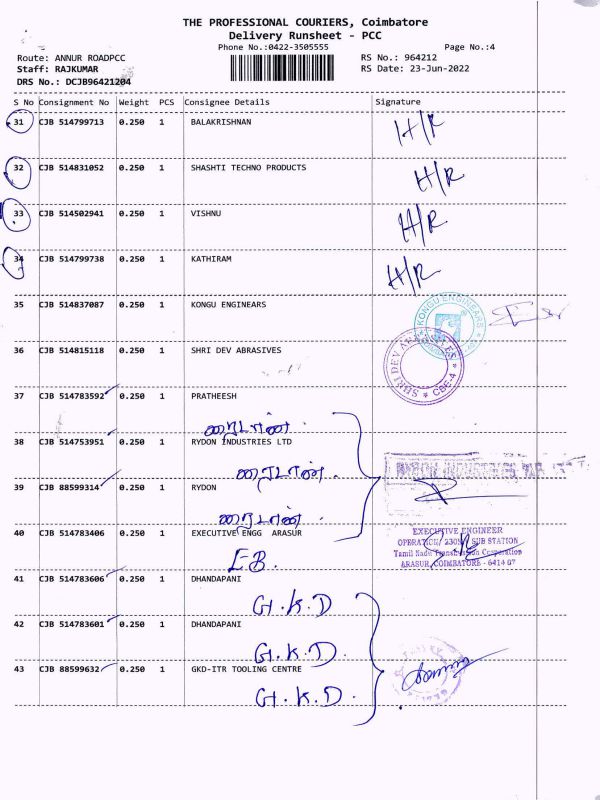 THE PROFESSIONAL COURIERS, Coimbatore
Delivery Runsheet - PCC
Phone No.:0422-3505555
Page No.:4
Route: ANNUR ROADPCC
RS No.: 964212
Staff: RAJKUMAR
RS Date: 23-Jun-2022
DRS No.: DCJB96421204
S No Consignment No Weight PCS Consignee Details Signature
31 CJB 514799713 0.250 1 BALAKRISHNAN H/R
32 CJB 514831052 0.250 1 SHASHTI TECHNO PRODUCTS H/R
33 CJB 514502941 0.250 1 VISHNU H/R
34 CJB 514799738 0.250 1 KATHIRAM H/R
35 CJB 514837087 0.250 1 KONGU ENGINEARS KONGU ENGINEARS
36 CJB 514815118 0.250 1 SHRI DEV ABRASIVES SHRI DEV CBE-4
37 CJB 514783592 0.250 1 PRATHEESH
றைடான்.
38 CJB 514753951 0.250 1 RYDON INDUSTRIES LTD
றைடான்.
39 CJB 88599314 0.250 1 RYDON
றைடான்.
40 CJB 514783406 0.250 1 EXECUTIVE ENGG ARASUR
EXECUTIVE ENGINEER
OPERATION/ 230 SUB STATION
Tamil Nadu Transmission Corporation
ARASUR, COIMBATORE - 641407
EB.
41 CJB 514783606 0.250 1 DHANDAPANI
G.K.D
42 CJB 514783601 0.250 1 DHANDAPANI
G.K.D.
43 CJB 88599632 0.250 1 GKD-ITR TOOLING CENTRE
G.K.D.